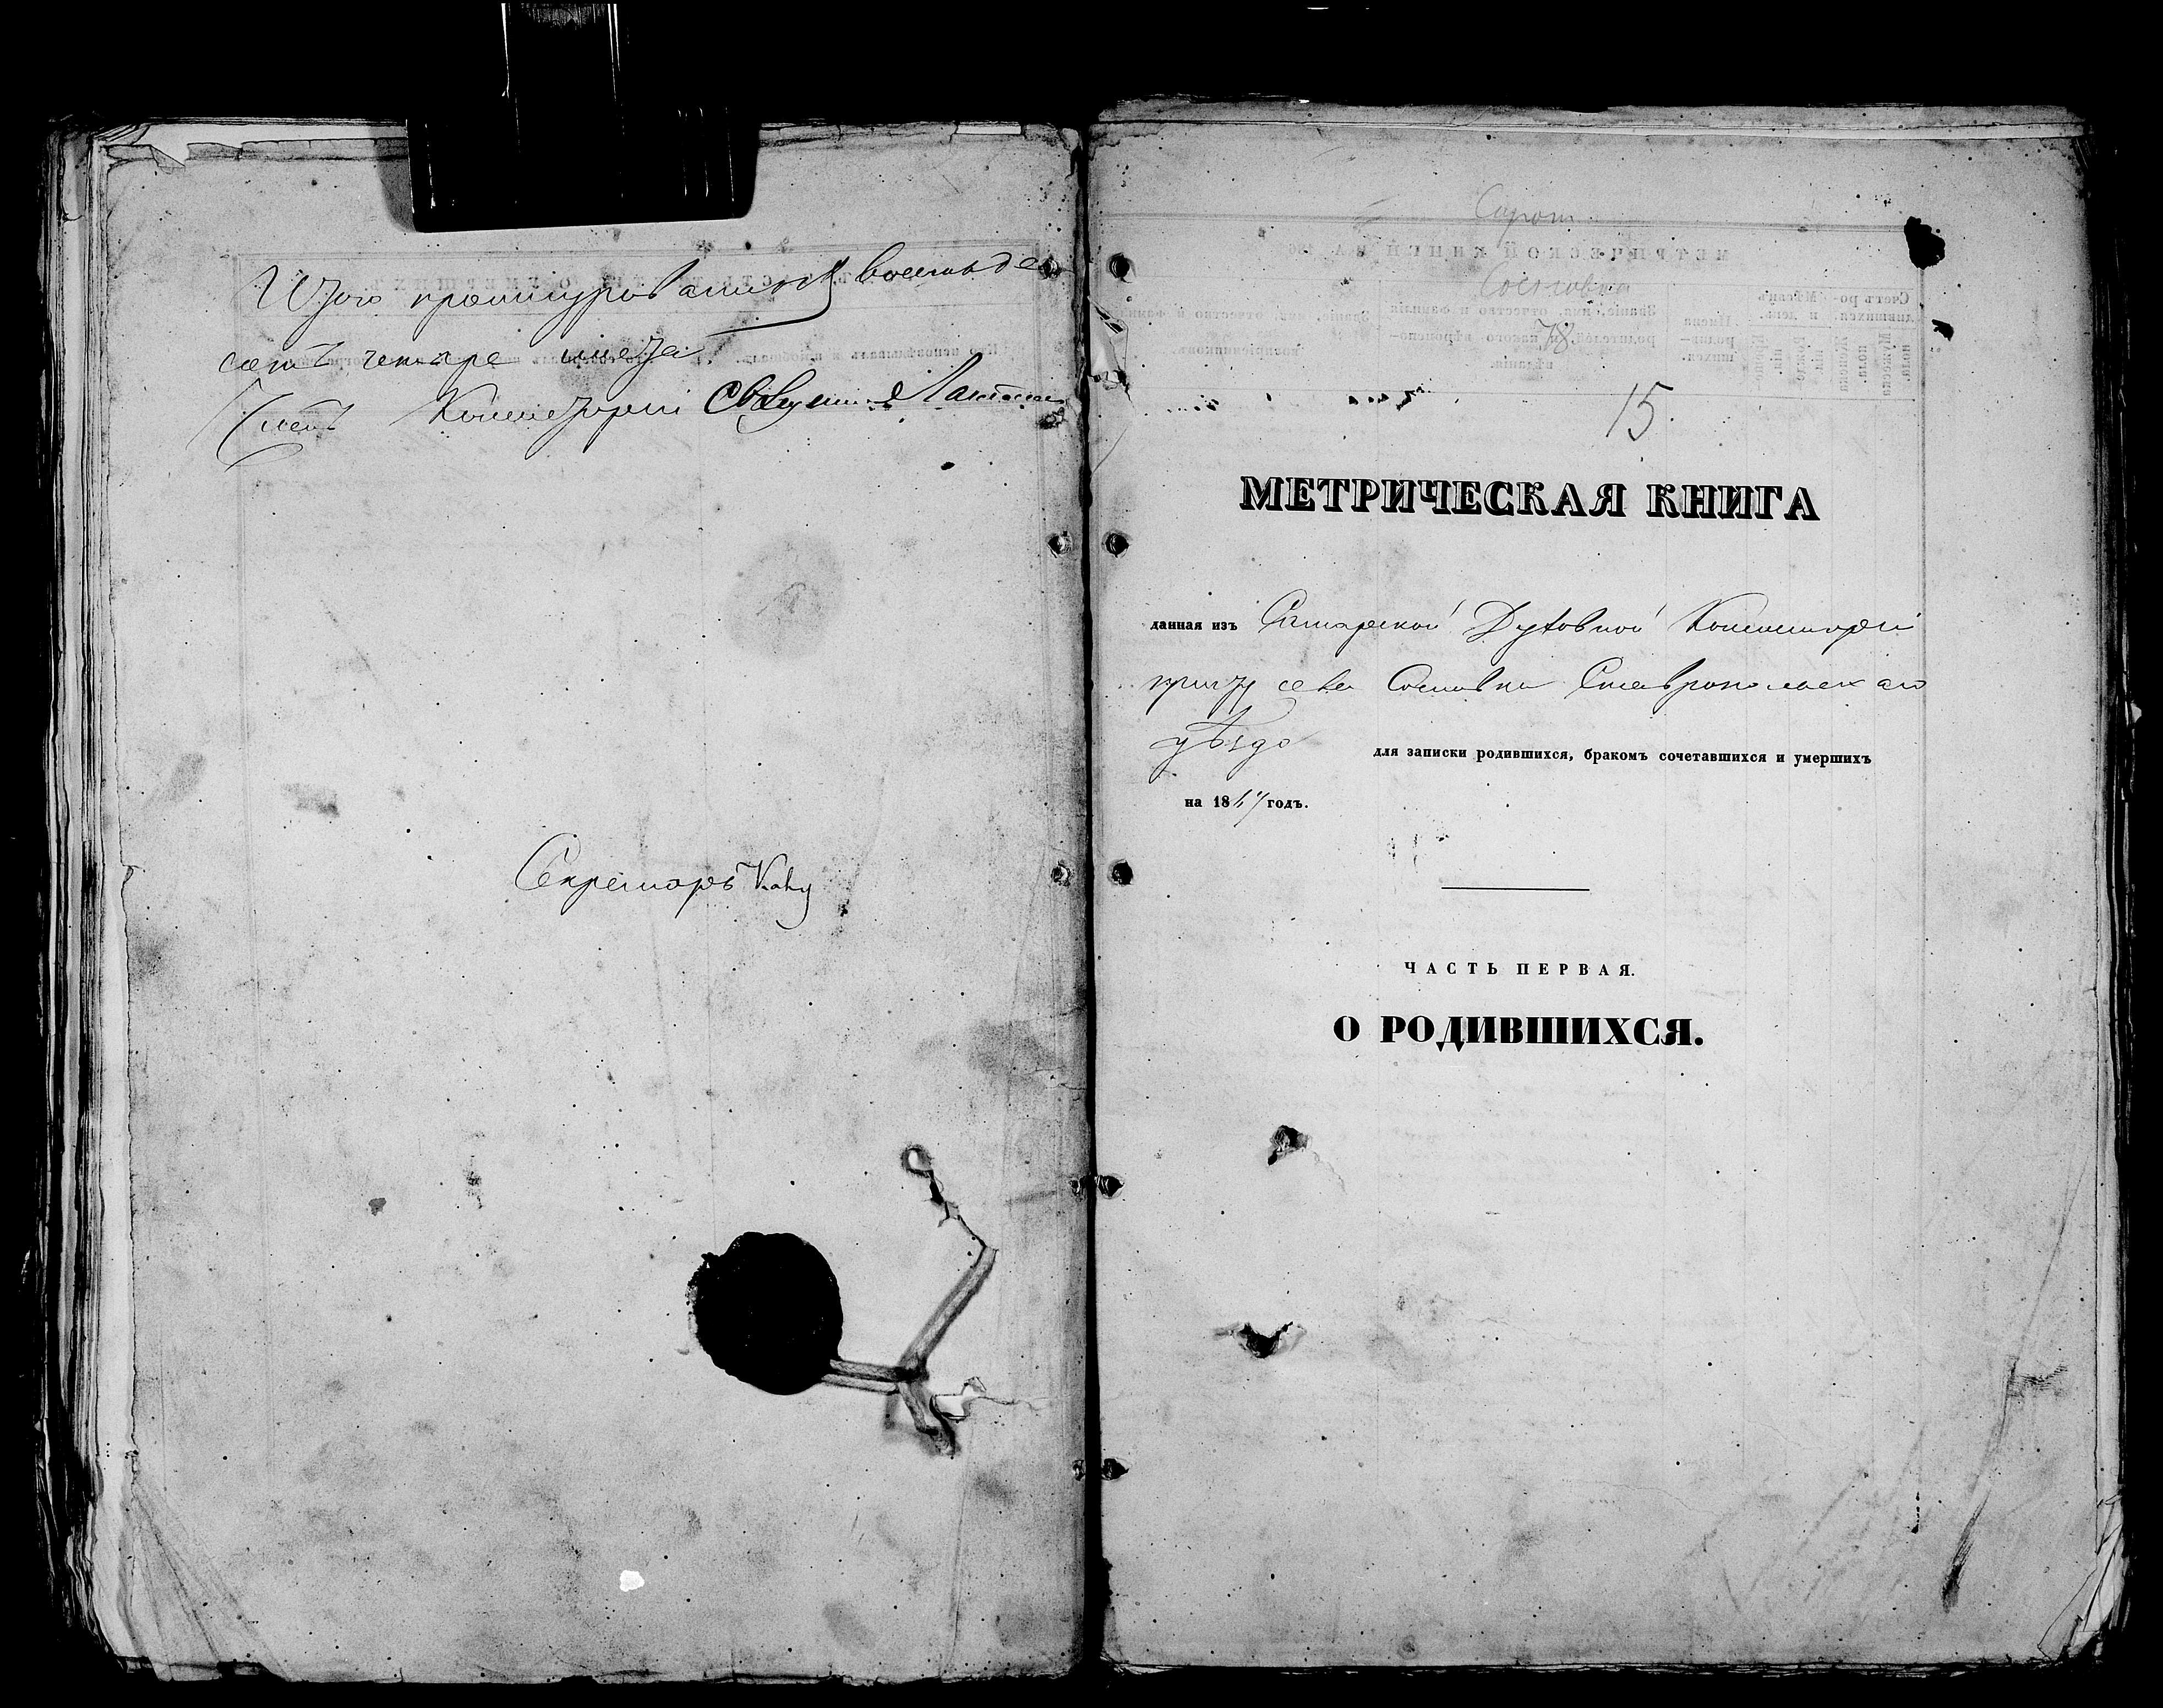 Итого прошнурованныхъ восемьде
сятъ четыре листа.
Членъ Консисторіи Священникъ
Секретарь
15.
МЕТРИЧЕСКАЯ КНИГА
данная изъ Самарской Духовной Консисторіи
причту села Сосновки Ставропольскаго
уѣзда для записки родившихся, бракомъ сочетавшихся и умершихъ
на 18 годъ.
ЧАСТЬ ПЕРВАЯ.
О РОДИВШИХСЯ.